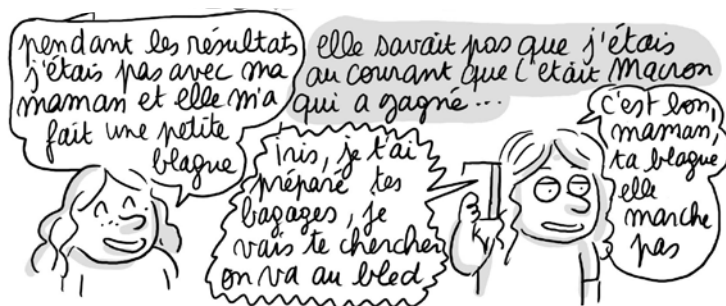 pendant les résultats
j'étais pas avec ma
maman et elle m'a
fait une petite
blague
elle savait pas que j'étais
au courant que c'était Macron
qui a gagné...
iris, je t'ai
préparé tes
bagages, je
vais te chercher
on va au bled
c'est bon,
maman,
ta blague
elle
marche
pas